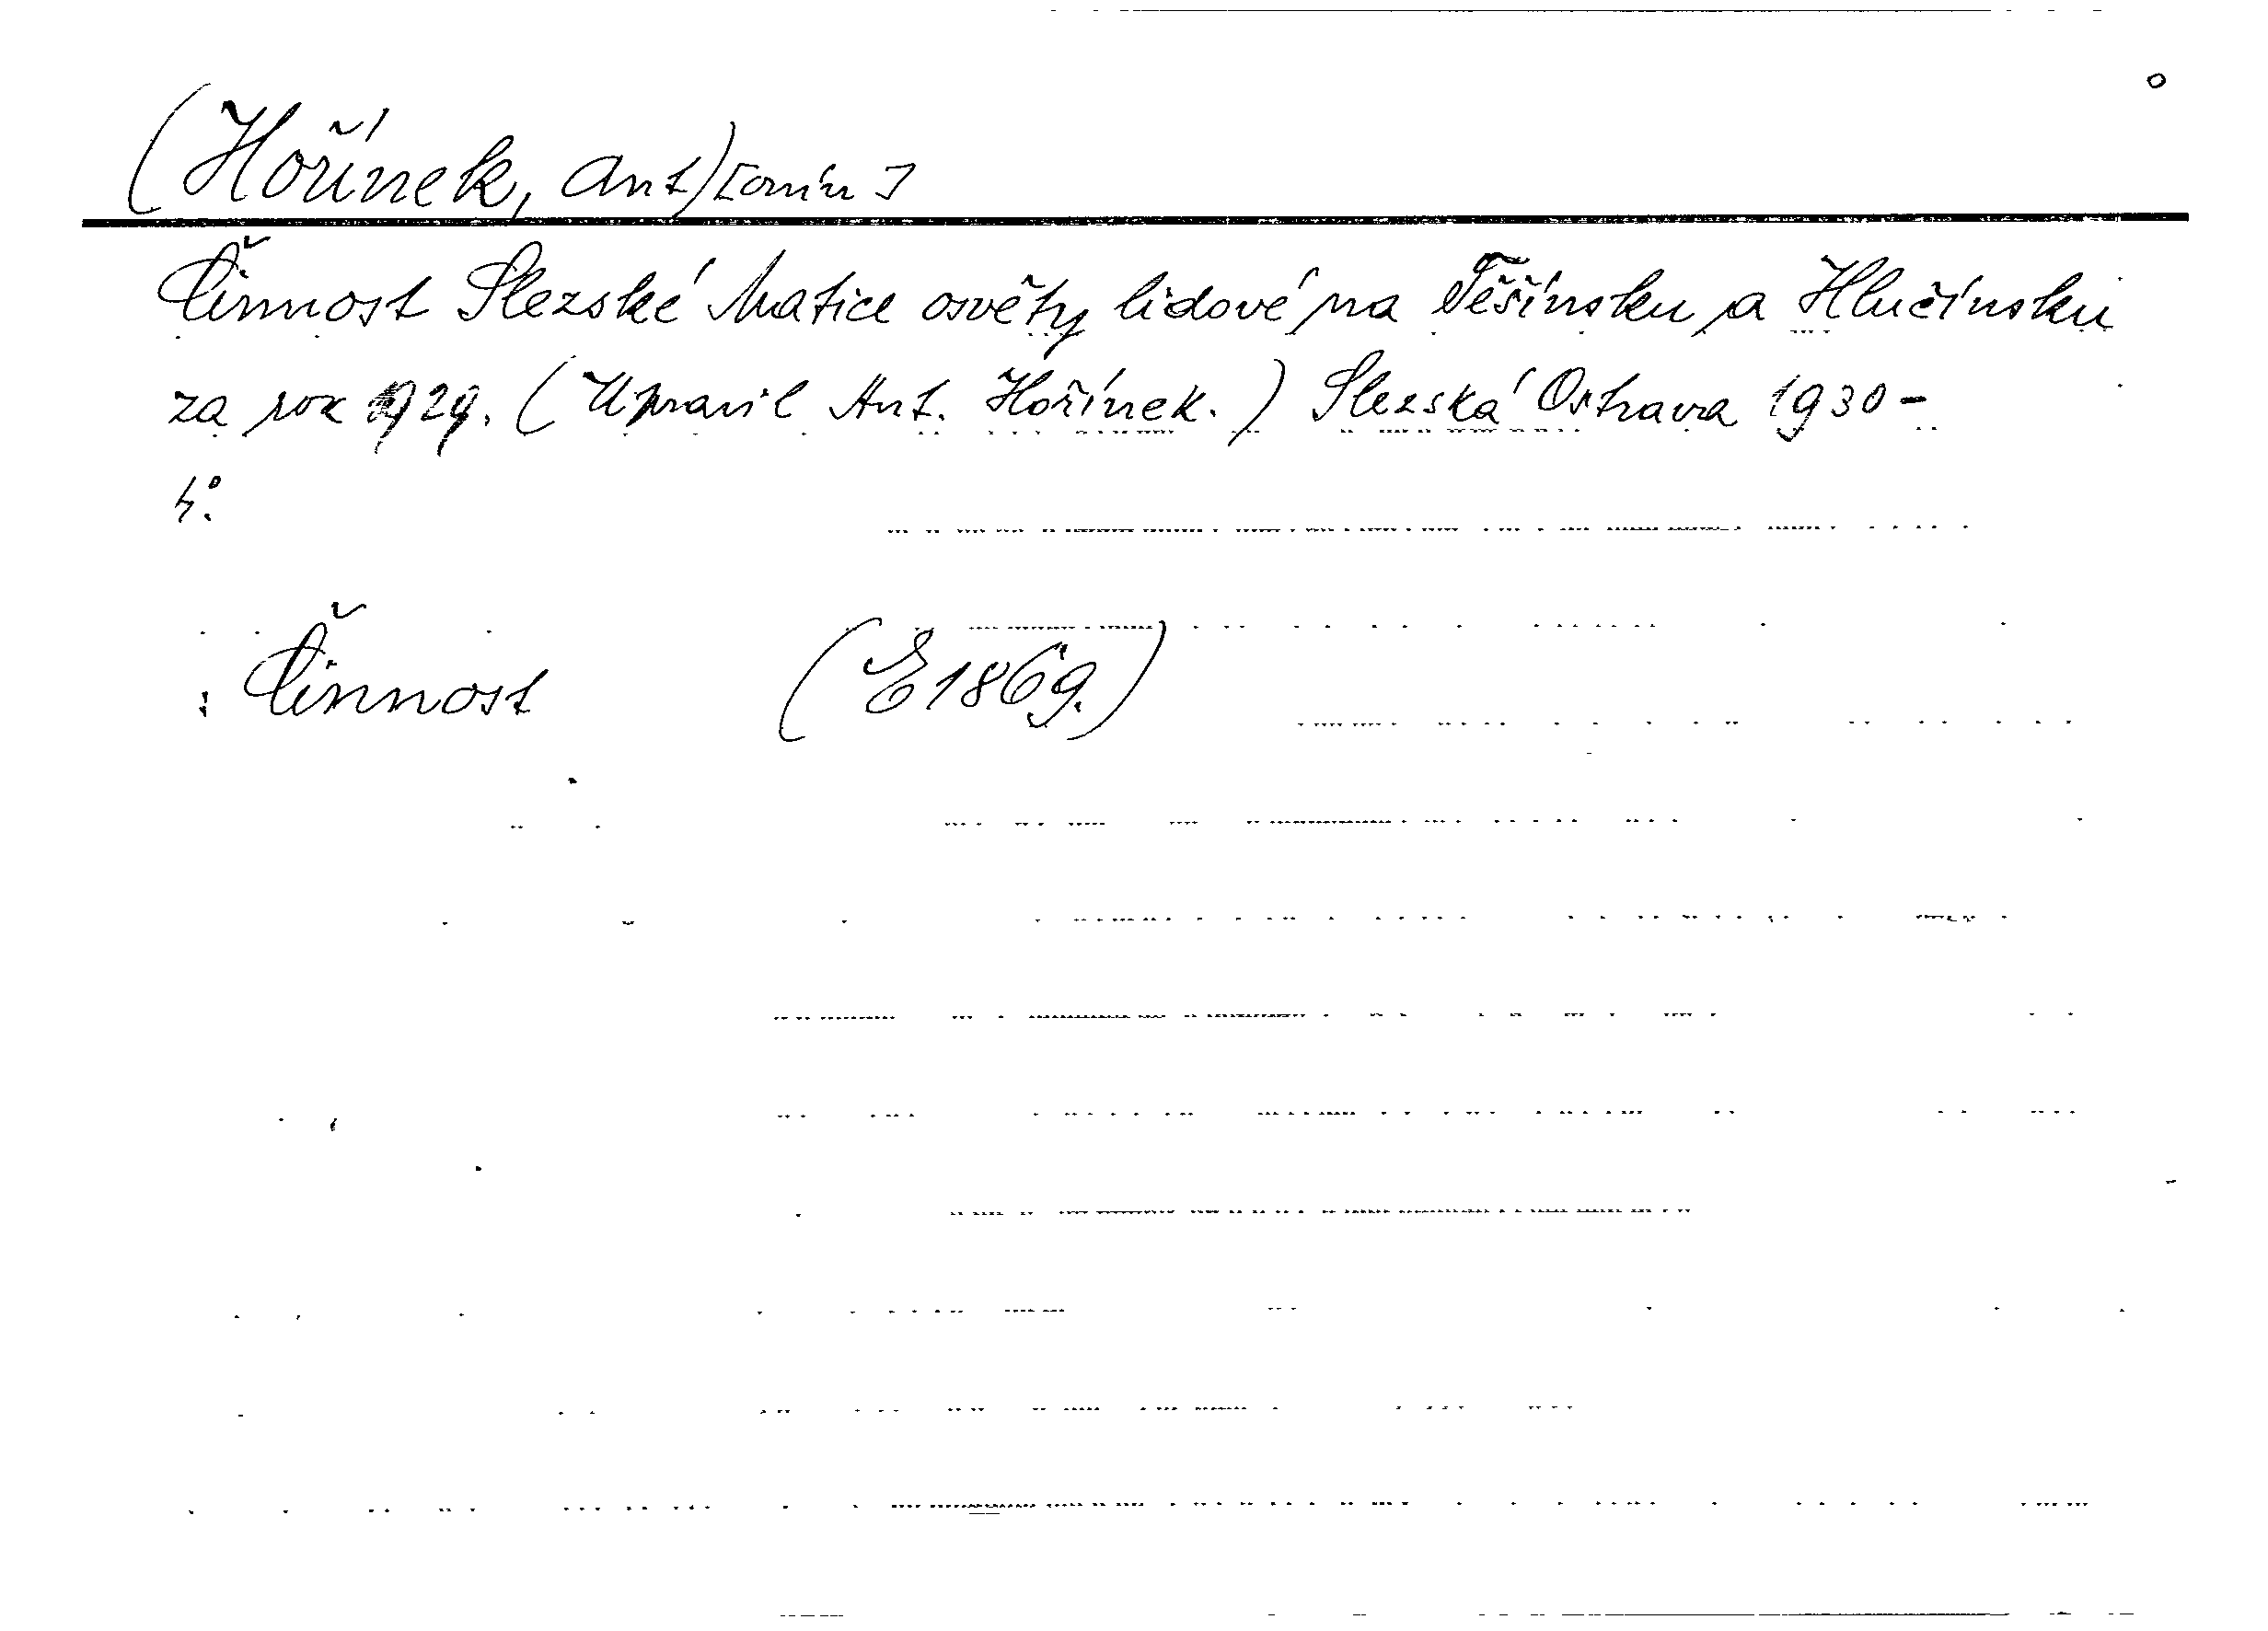 (Hořínek, Ant)[onín]
Činnost Slezské Matice osvěty lidové na Těšínsku a Hlučínsku
za rok 1929. (Upravil Ant. Hořínek.) Slezská Ostrava 1930-
4°.
: Činnost (E 1869.)